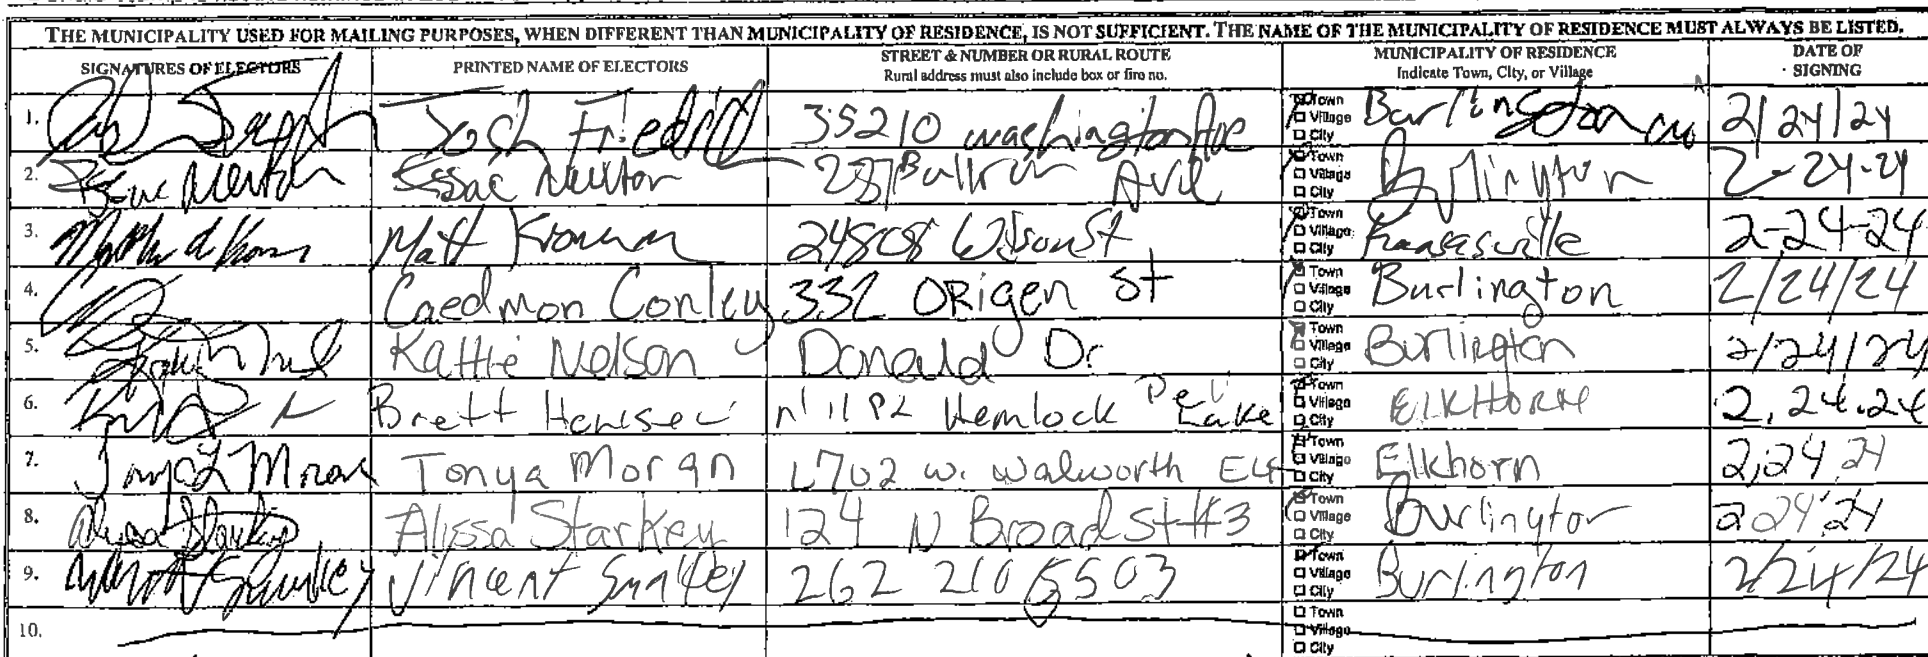 THE MUNICIPALITY USED FOR MAILING PURPOSES, WHEN DIFFERENT THAN MUNICIPALITY OF RESIDENCE, IS NOT SUFFICIENT. THE NAME OF THE MUNICIPALITY OF RESIDENCE MUST ALWAYS BE LISTED.
SIGNATURES OF ELECTORS PRINTED NAME OF ELECTORS STREET & NUMBER OR RURAL ROUTE MUNICIPALITY OF RESIDENCE DATE OF
Rural address must also include box or fire no. Indicate Town, City, or Village SIGNING
1. Josh 35210 Washington Ave Town Village City Burlington 2/24/24
2. Essac Newton Town Village City Burlington 2-24-24
3. Matt 24808 Wilson St Town Village City Kansasville 2-24-24
4. Caedmon Conley 332 ORigen St Town Village City Burlington 2/24/24
5. Kattie Nelson Donald Dr. Town Village City Burlington 2/24/24
6. Brett Hemlock Lake Town Village City ElKHORN 2.24.24
7. Tonya Moran Tonya Moran 1702 w. walworth Town Village City Elkhorn 2,24 24
8. Alissa Starkey Alissa Starkey 124 N Broad St #3 Town Village City Burlington 2 24 24
9. Vincent 262 210 5503 Town Village City Burlington 2/24/24
10. Town Village City